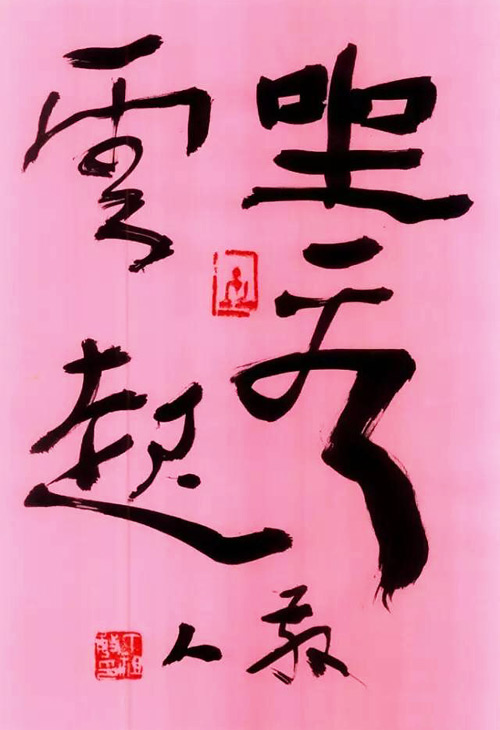 坐看
雲起
敬人